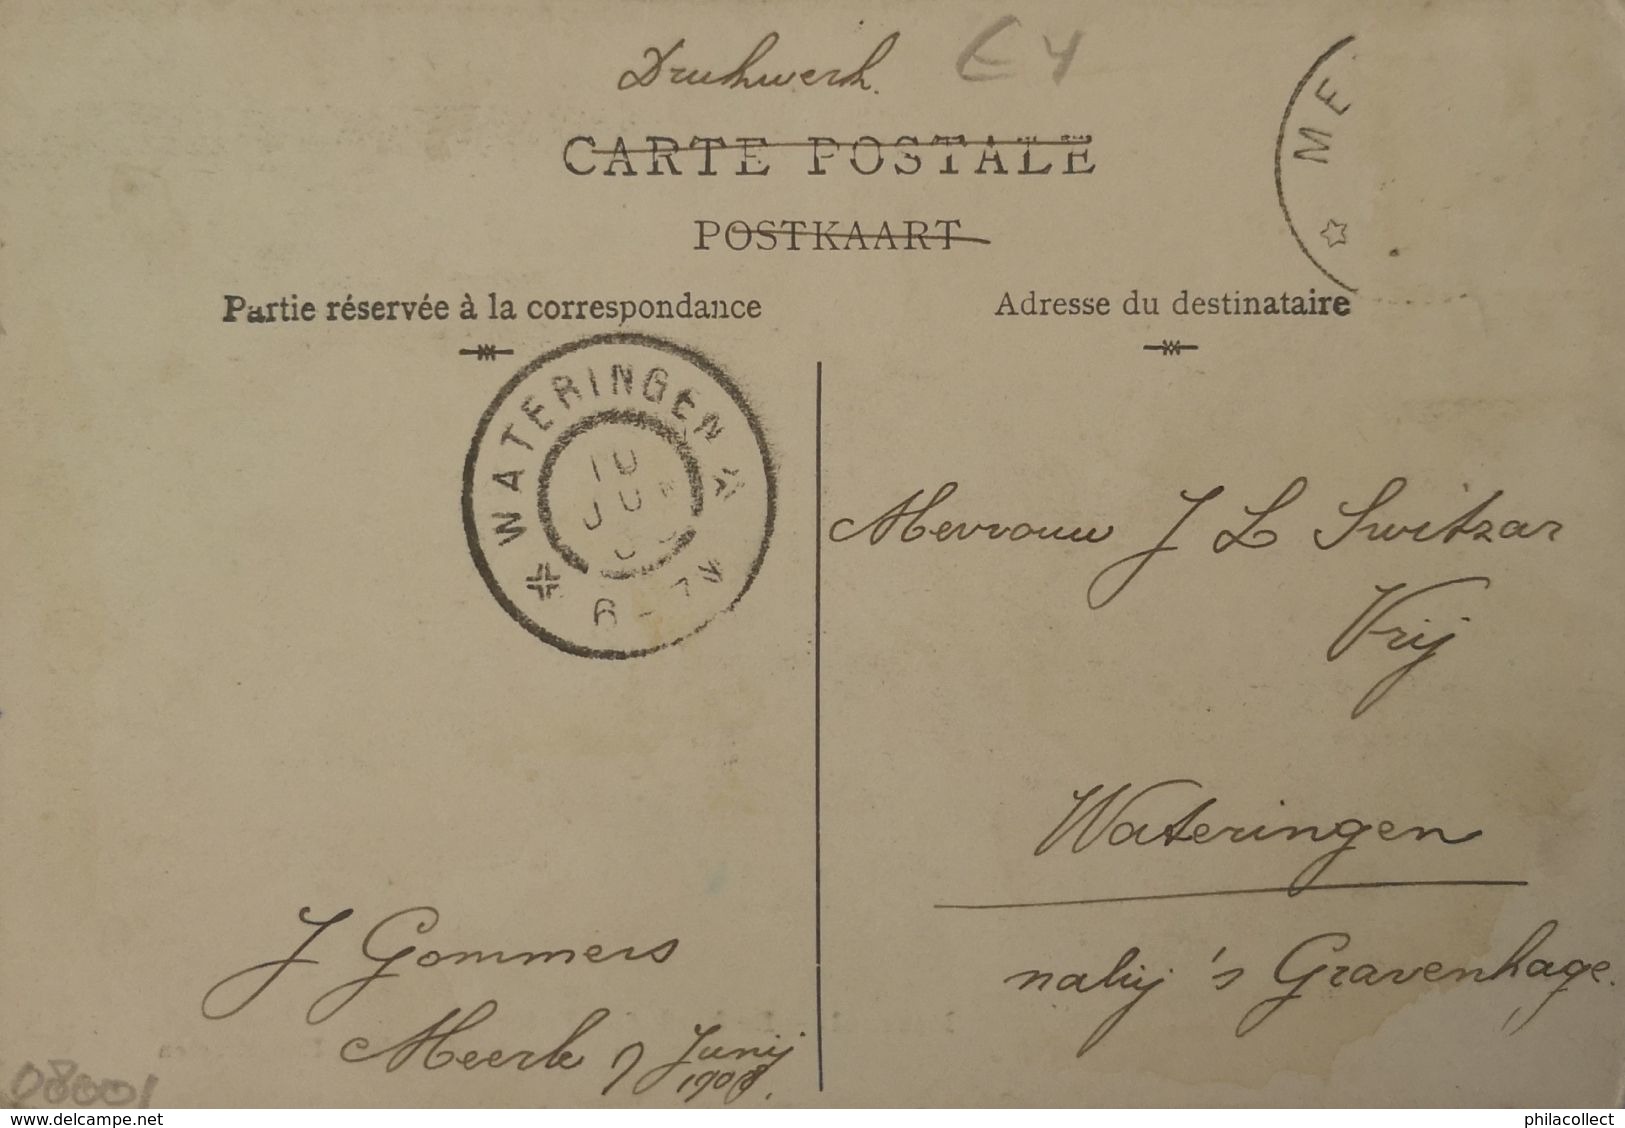 Drukwerk.
E 4
CARTE POSTALE
POSTKAART
Partie réservée à la correspondance
Adresse du destinataire
ME
WATERINGEN
10
JU
6-7N
Mevrouw J L Switzar
Vrij
Wateringen
nabij 's Gravenhage.
J Gommers
Meerle 7 Junij
1908.
08001
delcampe.net
philacollect